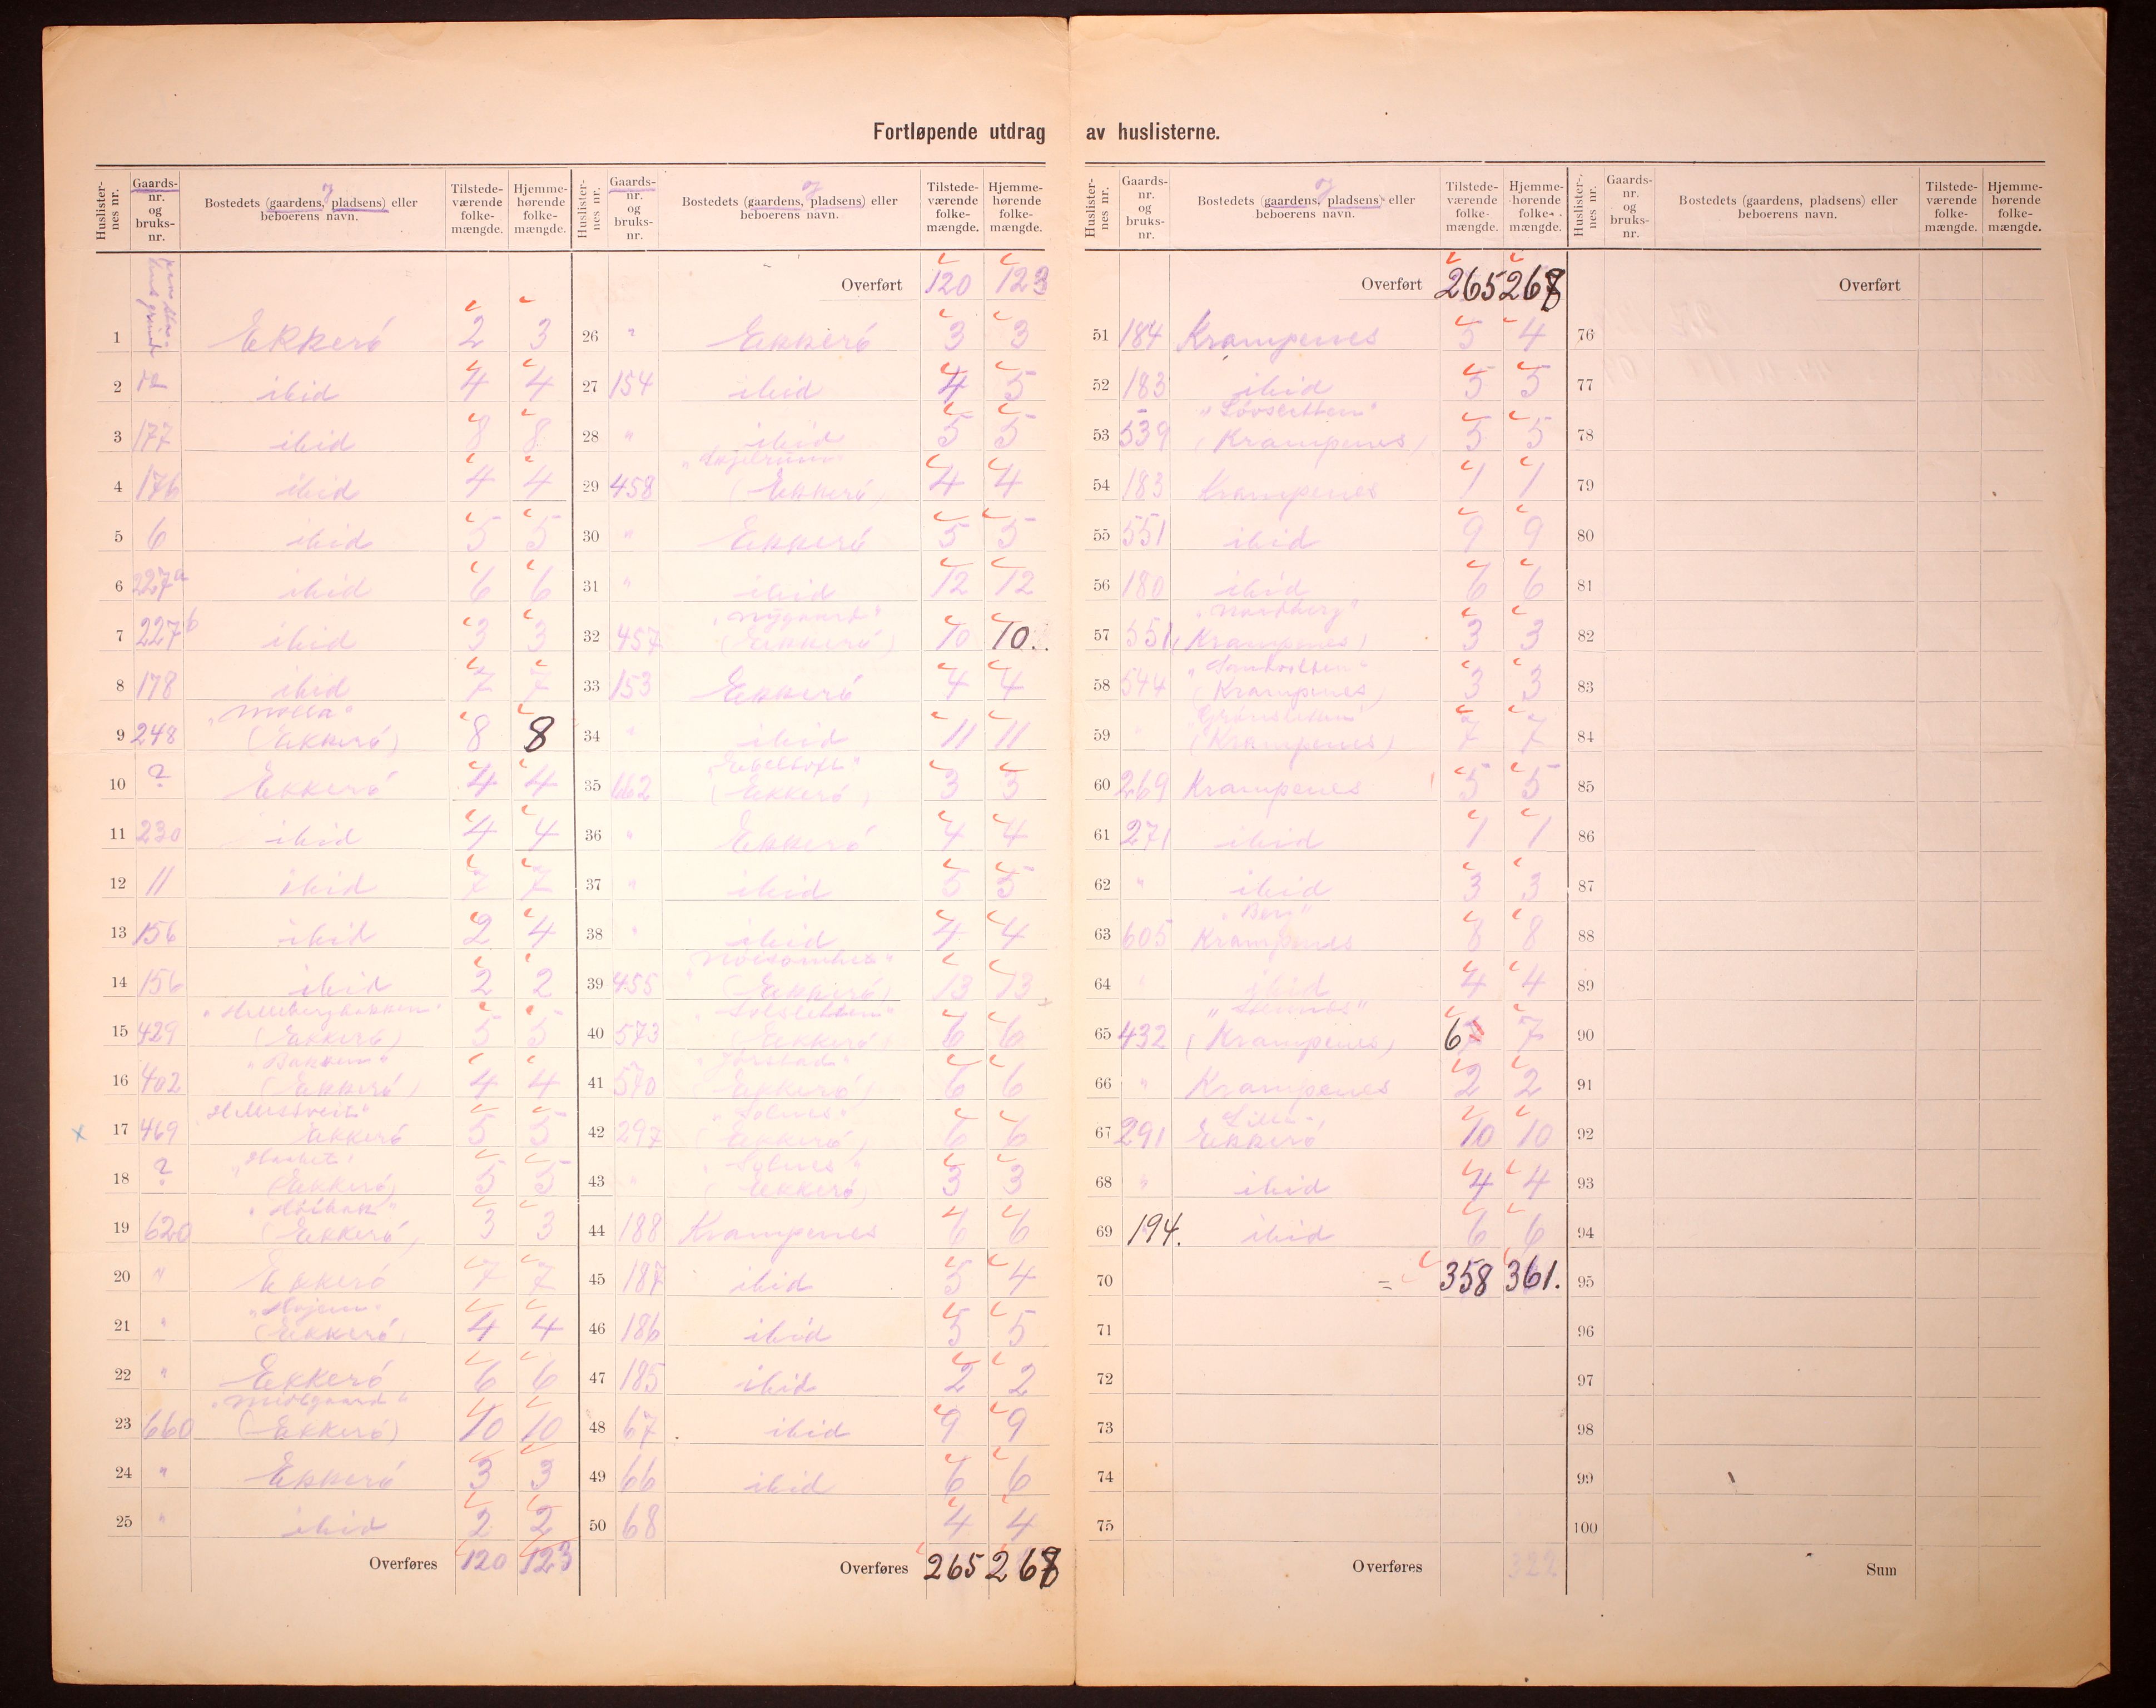 Fortløpende utdrag av huslisterne.
Huslister-nes nr. Gaards-nr. og bruks-nr. Bostedets (gaardens, pladsens) eller beboerens navn. Tilstede-værende folke-mængde. Hjemme-hørende folke-mængde.
1 Ekkerö 2 3
2 12 ibid 4 4
3 177 ibid 8 8
4 176 ibid 4 4
5 6 ibid 5 5
6 227a ibid 6 6
7 227b ibid 3 3
8 178 ibid 7 7
9 248 „Molla“ (Ekkerö) 8 8
10 ? Ekkerö 4 4
11 230 ibid 4 4
12 11 ibid 7 7
13 156 ibid 2 4
14 156 ibid 2 2
15 429 (Ekkerö) 5 5
16 402 „Bakken“ (Ekkerö) 4 4
17 469 Ekkerö 5 5
18 ? (Ekkerö) 5 5
19 620 (Ekkerö) 3 3
20 " Ekkerö 7 7
21 " (Ekkerö) 4 4
22 " Ekkerö 6 6
23 660 „Midtgaard“ (Ekkerö) 10 10
24 " Ekkerö 3 3
25 " ibid 2 2
Overføres 120 123
Huslister-nes nr. Gaards-nr. og bruks-nr. Bostedets (gaardens, pladsens) eller beboerens navn. Tilstede-værende folke-mængde. Hjemme-hørende folke-mængde.
Overført 120 123
26 " Ekkerö 3 3
27 154 ibid 4 5
28 " ibid 5 5
29 458 (Ekkerö) 4 4
30 " Ekkerö 5 5
31 " ibid 12 12
32 457 „Nygaard“ (Ekkerö) 10 10.
33 153 Ekkerö 4 4
34 " ibid 11 11
35 662 „Ebeltoft“ (Ekkerö) 3 3
36 " Ekkerö 4 4
37 " ibid 5 5
38 " ibid 4 4
39 455 „Nöisomhed“ (Ekkerö) 13 13
40 573 „Solsletten“ (Ekkerö) 6 6
41 570 (Ekkerö) 6 6
42 297 „Solnes“ (Ekkerö) 6 6
43 " „Solnes“ (Ekkerö) 3 3
44 188 Krampenes 6 6
45 187 ibid 5 4
46 186 ibid 5 5
47 185 ibid 2 2
48 67 ibid 9 9
49 66 ibid 6 6
50 68 4 4
Overføres 265 268
Huslister-nes nr. Gaards-nr. og bruks-nr. Bostedets (gaardens, pladsens) eller beboerens navn. Tilstede-værende folke-mængde. Hjemme-hørende folke-mængde.
Overført 265 268
51 184 Krampenes 5 4
52 183 ibid 5 5
53 539 (Krampenes) 5 5
54 183 Krampenes 1 1
55 551 ibid 9 9
56 180 ibid 6 6
57 551 „Nordberg“ (Krampenes) 3 3
58 544 (Krampenes) 3 3
59 " (Krampenes) 7 7
60 269 Krampenes 5 5
61 271 ibid 1 1
62 " ibid 3 3
63 605 „Berg“ Krampenes 8 8
64 " ibid 4 4
65 432 (Krampenes) 6 7
66 " Krampenes 2 2
67 291 Lille-Ekkerö 10 10
68 " ibid 4 4
69 194. ibid 6 6
70 = 358 361.
71
72
73
74
75
Overføres 322
Huslister-nes nr. Gaards-nr. og bruks-nr. Bostedets (gaardens, pladsens) eller beboerens navn. Tilstede-værende folke-mængde. Hjemme-hørende folke-mængde.
Overført
76
77
78
79
80
81
82
83
84
85
86
87
88
89
90
91
92
93
94
95
96
97
98
99
100
Sum